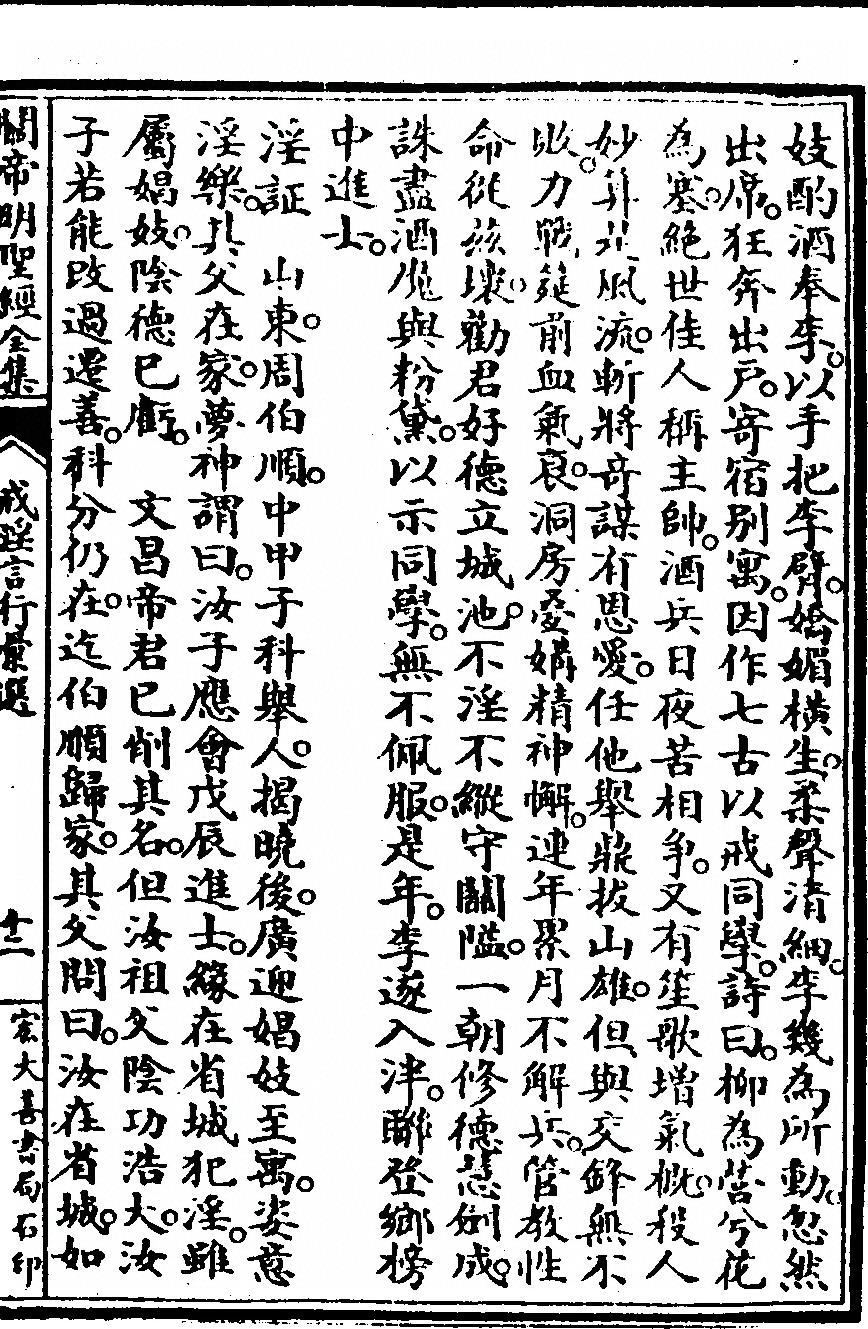 妓酌酒奉李。以手把李臂。嬌媚橫生。柔聲清細。李幾為所動。忽然
出席。狂奔出戶。寄宿别寓。因作七古以戒同學。詩曰。柳為營兮花
為塞。絕世佳人稱主帥。酒兵日夜苦相爭。又有笙歌增氣概。殺人
妙算是風流。斬將奇謀有恩愛。任他舉鼎拔山雄。但與交鋒無不
敗。力戰筵前血氣衰。洞房受媾精神懈。連年累月不解兵。管教性
命從茲壞。勸君好德立城池。不淫不縱守關隘。一朝修德慧劍成。
誅盡酒魔與粉黛。以示同學。無不佩服。是年。李遂入泮。聯登鄉榜
中進士。
淫証　山東。周伯順。中甲子科舉人。揭曉後。廣迎娼妓至寓。姿意
淫樂。其父在家。夢神謂曰。汝子應會戊辰進士。緣在省城犯淫。雖
屬娼妓。陰德已虧。　文昌帝君已削其名。但汝祖父陰功浩大。汝
子若能改過遷善。科分仍在。迄伯順歸家。其父問曰。汝在省城。如
關帝明聖經全集
戒淫言行彙選
十二
宏大善書局石印